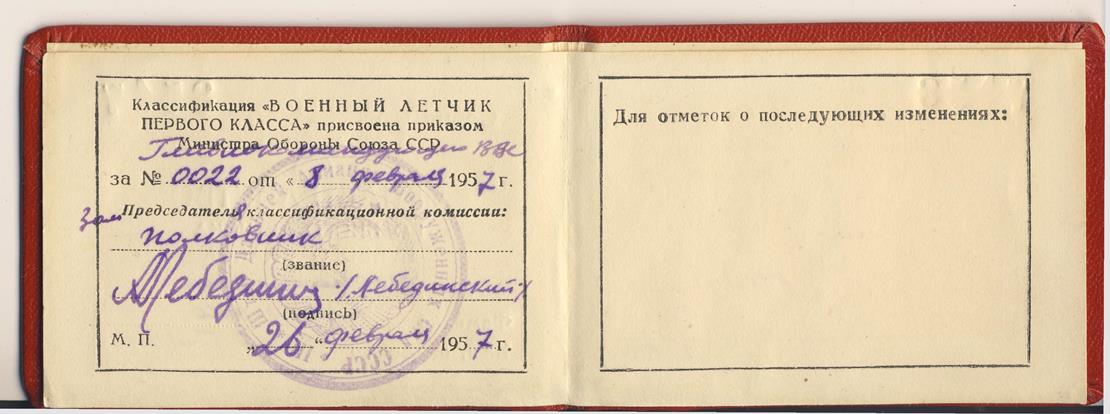 Классификация «ВОЕННЫЙ ЛЕТЧИК
ПЕРВОГО КЛАССА» присвоена приказом
Министра Обороны Союза ССР
Главнокомандующего ВВС
за № 0022 от « 8 февраля 1957 г.
Зам Председателя классификационной комиссии:
полковник
(звание)
Лебединский /Лебединский/
(подпись)
М. П. „26“ февраля 1957 г.
Для отметок о последующих изменениях: